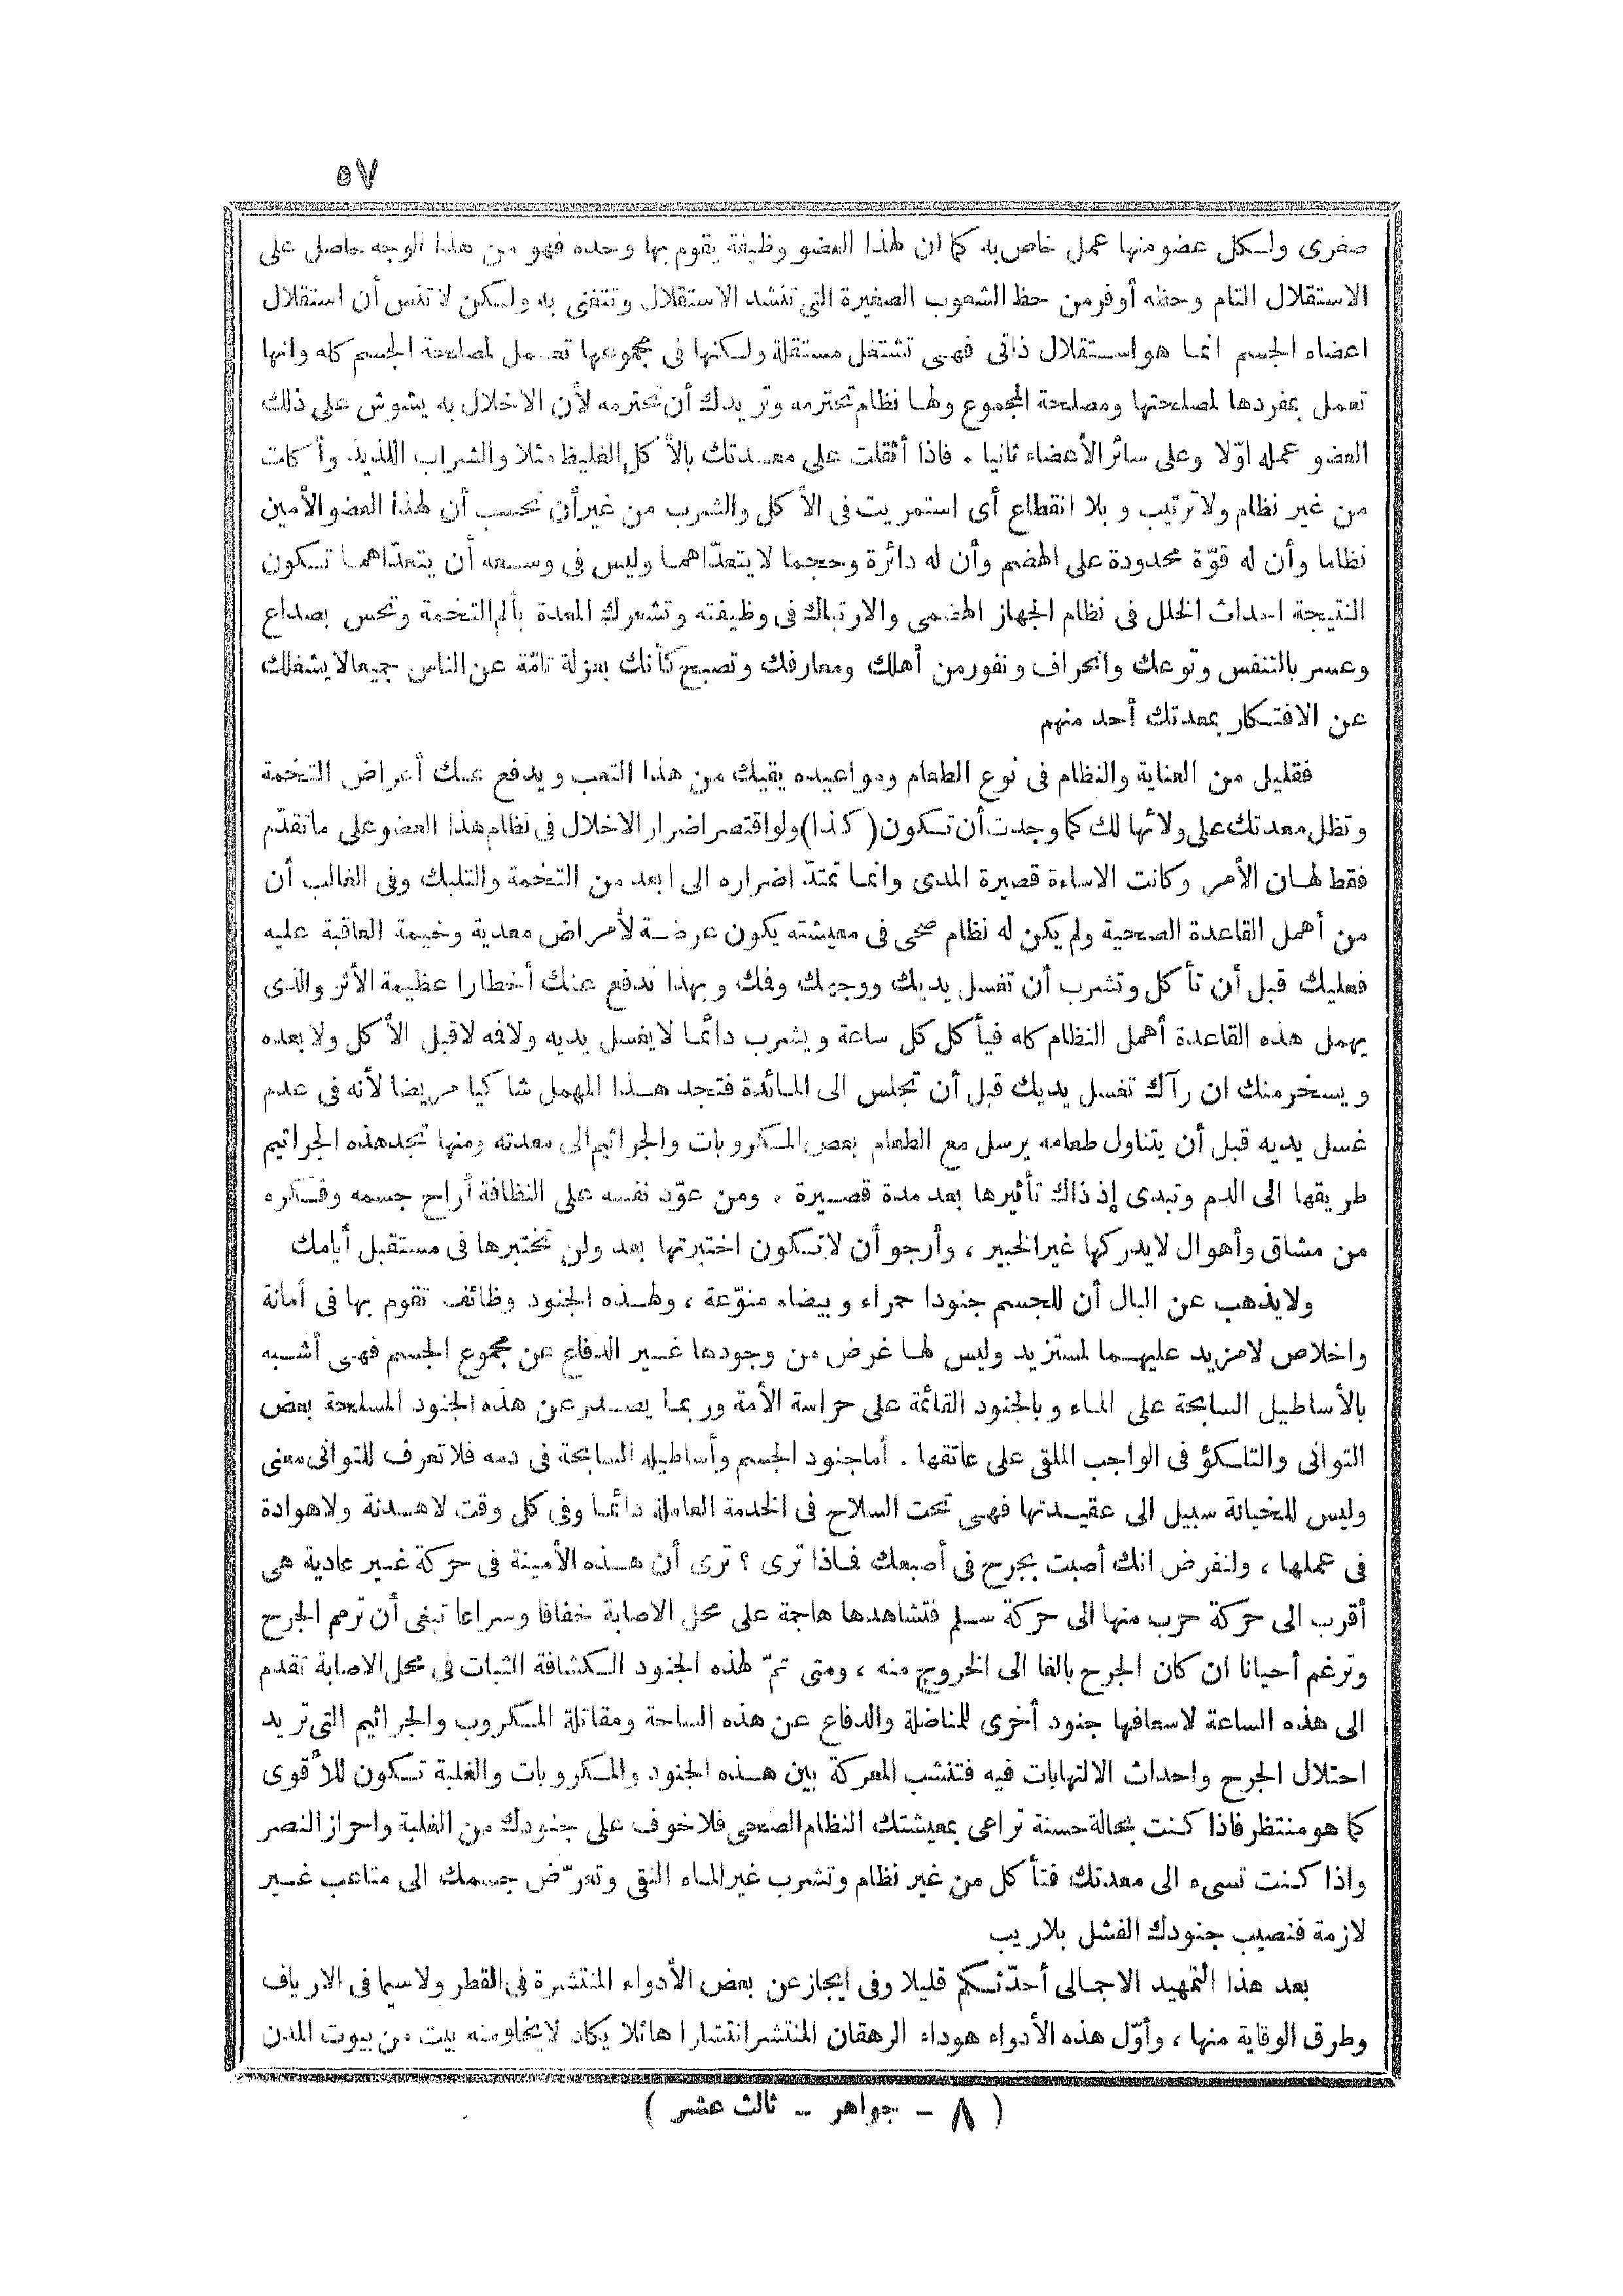 ٥٧
صغرى ولكل عضو منها عمل خاص به كما ان لهذا العضو وظيفة يقوم بها وحده فهو من هذا الوجه حاصل على
الاستقلال التام وحظه أوفر من حظ الشعوب الصغيرة التى تنشد الاستقلال وتتغنى به ولكن لا تنس أن استقلال
اعضاء الجسم انما هو استقلال ذاتى فهى تشتغل مستقلة ولكنها فى مجموعها تعمل لمصلحة الجسم كله وانها
تعمل بمفردها لمصلحتها ومصلحة المجموع ولها نظام تحترمه وتريدك أن تحترمه لأن الاخلال به يشوش على ذلك
العضو عمله اوّلا وعلى سائر الأعضاء ثانيا . فاذا أثقلت على معدتك بالأكل الغليظ مثلا والشراب اللذيذ وأكلت
من غير نظام ولا ترتيب وبلا انقطاع أى استمريت فى الأكل والشرب من غير أن تحسب أن لهذا العضو الأمين
نظاما وأن له قوّة محدودة على الهضم وأن له دائرة وحجما لا يتعدّاهما وليس فى وسعه أن يتعدّاهما تكون
النتيجة احداث الخلل فى نظام الجهاز الهضمى والارتباك فى وظيفته وتشعرك المعدة بألم التخمة وتحس بصداع
وعسر بالتنفس وتوعك وانحراف ونفور من أهلك ومعارفك وتصبح كأنك بعزلة تامّة عن الناس جميعا لا يشغلك
عن الافتكار بمعدتك أحد منهم
فقليل من العناية والنظام فى نوع الطعام ومواعيده يقيك من هذا التعب ويدفع عنك أعراض التخمة
وتظل معدتك على ولائها لك كما وجدت أن تكون ( كذا ) ولو اقتصر اضرار الاخلال فى نظام هذا العضو على ما تقدّم
فقط لهان الأمر وكانت الاساءة قصيرة المدى وانما تمتدّ اضراره الى ابعد من التخمة والتلبك وفى الغالب أن
من أهمل القاعدة الصحية ولم يكن له نظام صحى فى معيشته يكون عرضة لأمراض معدية وخيمة العاقبة عليه
فعليك قبل أن تأكل وتشرب أن تغسل يديك ووجهك وفمك وبهذا تدفع عنك أخطارا عظيمة الأثر والذى
يهمل هذه القاعدة أهمل النظام كله فيأكل كل ساعة ويشرب دائما لا يغسل يديه ولا فه لا قبل الأكل ولا بعده
ويسخر منك ان رآك تغسل يديك قبل أن تجلس الى المائدة فتجد هذا المهمل شاكيا مريضا لأنه فى عدم
غسل يديه قبل أن يتناول طعامه يرسل مع الطعام بعض المكروبات والجراثيم الى معدته ومنها تجد هذه الجراثيم
طريقها الى الدم وتبدى إذ ذاك تأثيرها بعد مدة قصيرة . ومن عوّد نفسه على النظافة أراح جسمه وفكره
من مشاق وأهوال لا يدركها غير الخبير ، وأرجو أن لا تكون اختبرتها بعد ولن تختبرها فى مستقبل أيامك
ولا يذهب عن البال أن للجسم جنودا حمراء وبيضاء منوّعة ، ولهذه الجنود وظائف تقوم بها فى أمانة
واخلاص لا مزيد عليهما لمستزيد وليس لها غرض من وجودها غير الدفاع عن مجموع الجسم فهى أشبه
بالأساطيل السابحة على الماء وبالجنود القائمة على حراسة الأمة وربما يصدر عن هذه الجنود المسلحة بعض
التوانى والتلكؤ فى الواجب الملقى على عاتقها . أما جنود الجسم وأساطيله السابحة فى دمه فلا تعرف للتوانى معنى
وليس للخيانة سبيل الى عقيدتها فهى تحت السلاح فى الخدمة العاملة دائما وفى كل وقت لا هدنة ولا هوادة
فى عملها ، ولنفرض انك أصبت بجرح فى أصبعك فماذا ترى ؟ ترى أن هذه الأمينة فى حركة غير عادية هى
أقرب الى حركة حرب منها الى حركة سلم فتشاهدها هاجمة على محل الاصابة خفافا وسراعا تبغى أن ترمم الجرح
وترغم أحيانا ان كان الجرح بالغا الى الخروج منه ، ومتى تمّ لهذه الجنود الكشافة الثبات فى محل الاصابة تقدم
الى هذه الساعة لاسعافها جنود أخرى للمناضلة والدفاع عن هذه الساحة ومقاتلة المكروب والجراثيم التى تريد
احتلال الجرح واحداث الالتهابات فيه فتنشب المعركة بين هذه الجنود والمكروبات والغلبة تكون للأقوى
كما هو منتظر فاذا كنت بحالة حسنة تراعى بمعيشتك النظام الصحى فلا خوف على جنودك من الغلبة واحراز النصر
واذا كنت تسىء الى معدتك فتأكل من غير نظام وتشرب غير الماء النقى وتعرّض جسمك الى متاعب غير
لازمة فنصيب جنودك الفشل بلا ريب
بعد هذا التمهيد الاجمالى أحدّثكم قليلا وفى ايجاز عن بعض الأدواء المنتشرة فى القطر ولا سيما فى الارياف
وطرق الوقاية منها ، وأوّل هذه الأدواء هو داء الرهقان المنتشر انتشارا هائلا يكاد لا يخلو منه بيت من بيوت المدن
( ٨ - جواهر - ثالث عشر )